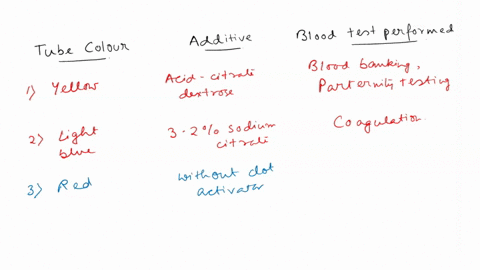 Tube Colour Additive Blood test performed
1) Yellow Acid-citrate dextrose Blood banking, Parternity testing
2) Light blue 3.2% sodium citrate Coagulation
3) Red without clot activator